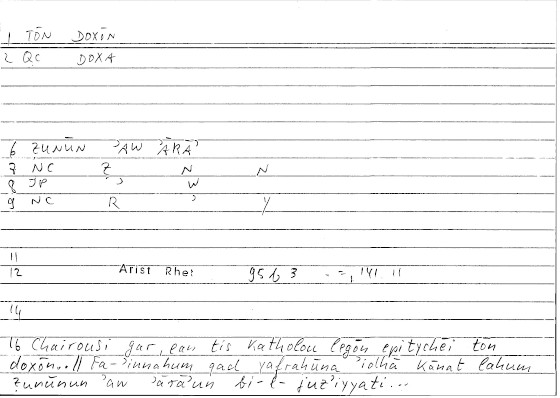 1 TŌN DOXŌN
2 QC DOXA
6 ẒUNŪN ʾAW ʾĀRĀʾ
7 NC Ẓ N N
8 JP ʾ W
9 NC R ʾ Y
11
12 Arist Rhet 95b 3 - =, 141. 11
14
16 Chairousi gar, ean tis katholou legōn epitychēi tōn
doxōn..// Fa-ʾinnahum qad yafraḥūna ʾidhā kānat lahum
ẓunūnun ʾaw ʾārāʾun bi-l-juzʾiyyati...